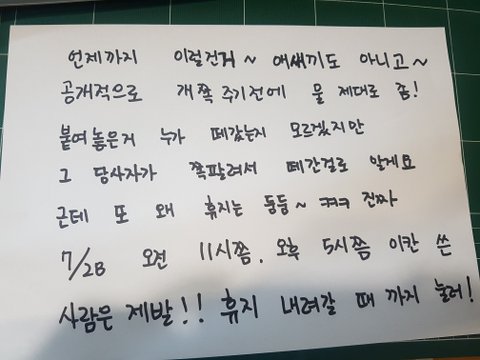 언제까지 이럴건거~ 애새끼도 아니고~
공개적으로 개쪽 주기전에 물 제대로 좀!
붙여높은거 누가 떼갔는지 모르겠지만
그 당사자가 쪽팔려서 떼간걸로 알게요
근데 또 왜 휴지는 둥둥~ ㅋㅋㅋ 진짜
7/28 오전 11시쯤, 오후 5시쯤 이칸 쓴
사람은 제발!! 휴지 내려갈 때 까지 눌러!